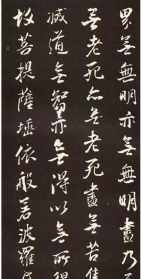 界無無明亦無無明盡乃至
無老死亦無老死盡無苦集
滅道無智亦無得以無所得
故菩提薩埵依般若波羅